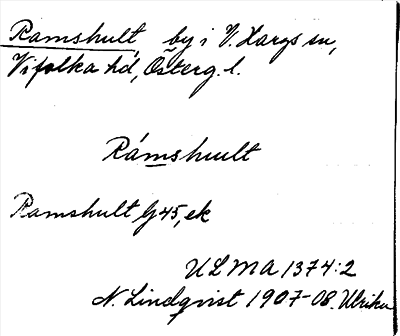 Ramshult by i V. Hargs sn,
Vifolka hd, Österg. l.
Rámshullt
Ramshult G 45, ek
ULMA 1374:2
N. Lindqvist 1907-08. Ulrika